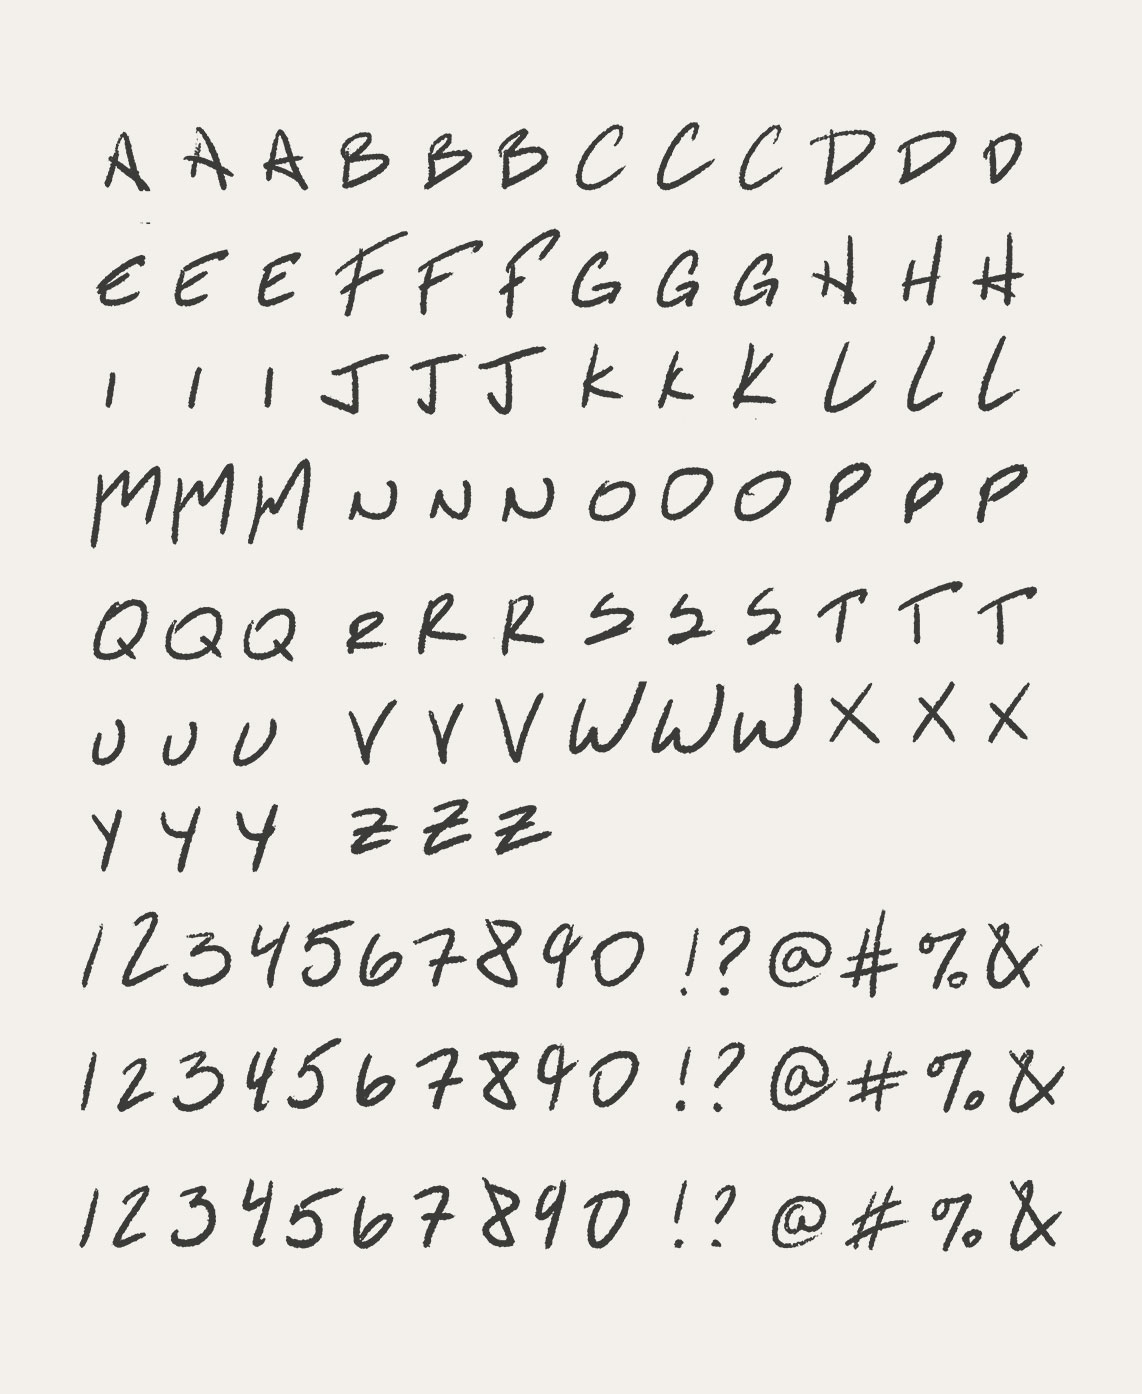 A A A B B B C C C D D D
E E E F F F G G G H H H
I I I J J J K K K L L L
M M M N N N O O O P P P
Q Q Q R R R S S S T T T
U U U V V V W W W X X X
Y Y Y Z Z Z
1 2 3 4 5 6 7 8 9 0 ! ? @ # % &
1 2 3 4 5 6 7 8 9 0 ! ? @ # % &
1 2 3 4 5 6 7 8 9 0 ! ? @ # % &